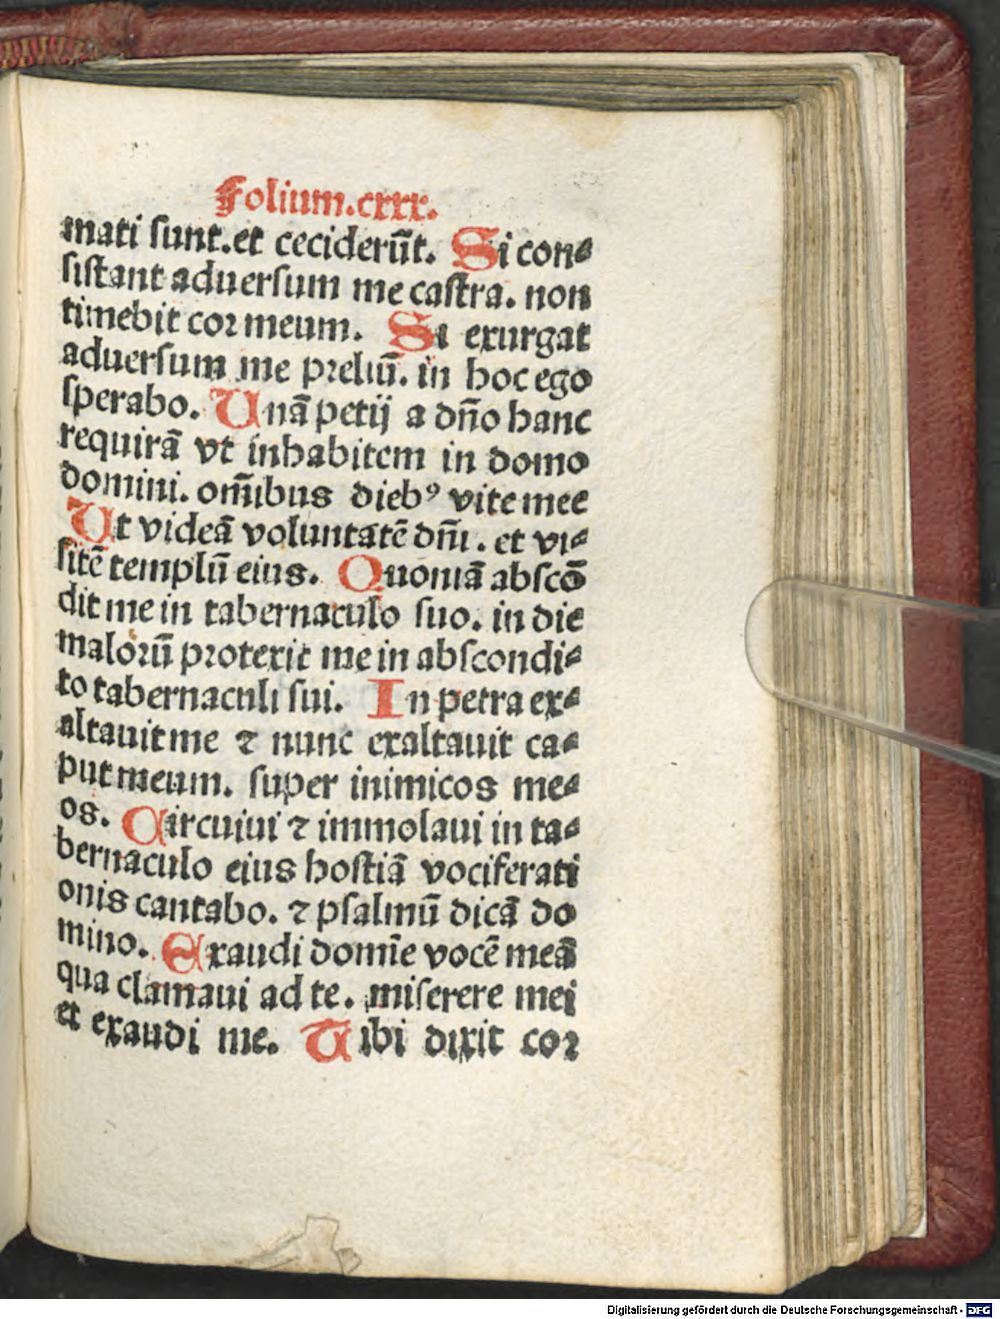 Folium.cxxx.
mati sunt.et ceciderūt. Si con⸗
sistant aduersum me castra. non
timebit cor meum. Si exurgat
aduersum me preliū. in hoc ego
sperabo. Unā petij a dn̄o hanc
requirā vt inhabitem in domo
domini. om̄ibus diebꝰ vite mee
Ut videā voluntatē dn̄i. et vi⸗
sitē templū eius. Quoniā abscō
dit me in tabernaculo suo. in die
malorū protexit me in abscondi⸗
to tabernaculi sui. In petra ex⸗
altauit me ⁊ nunc exaltauit ca⸗
put meum. super inimicos me⸗
os. Circuiui ⁊ immolaui in ta⸗
bernaculo eius hostiā vociferati
onis cantabo. ⁊ psalmū dicā do
mino. Exaudi domīe vocē meā
qua clamaui ad te. miserere mei
et exaudi me. Tibi dixit cor
Digitalisierung gefördert durch die Deutsche Forschungsgemeinschaft - DFG